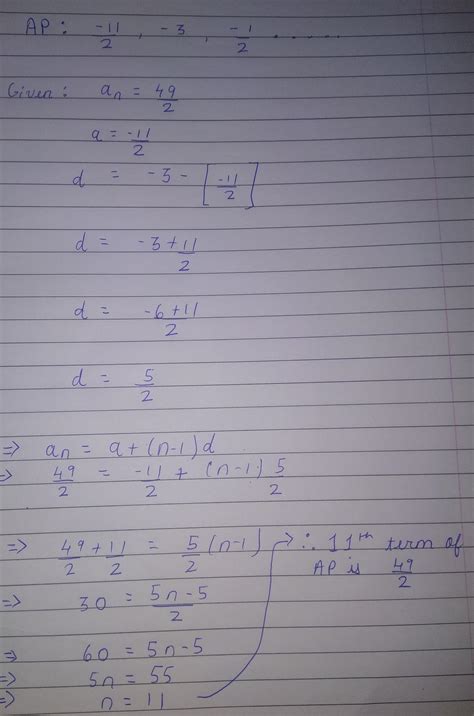 AP : -11/2 , -3 , -1/2 . . . . . .
Given : aₙ = 49/2
a = -11/2
d = -3 - [-11/2]
d = -3 + 11/2
d = -6 + 11/2
d = 5/2
=> aₙ = a + (n-1) d
=> 49/2 = -11/2 + (n-1) 5/2
=> 49/2 + 11/2 = 5/2 (n-1)
=> 30 = 5n - 5/2
=> 60 = 5n - 5
=> 5n = 55
=> n = 11
→ ∴ 11th term of
AP is 49/2